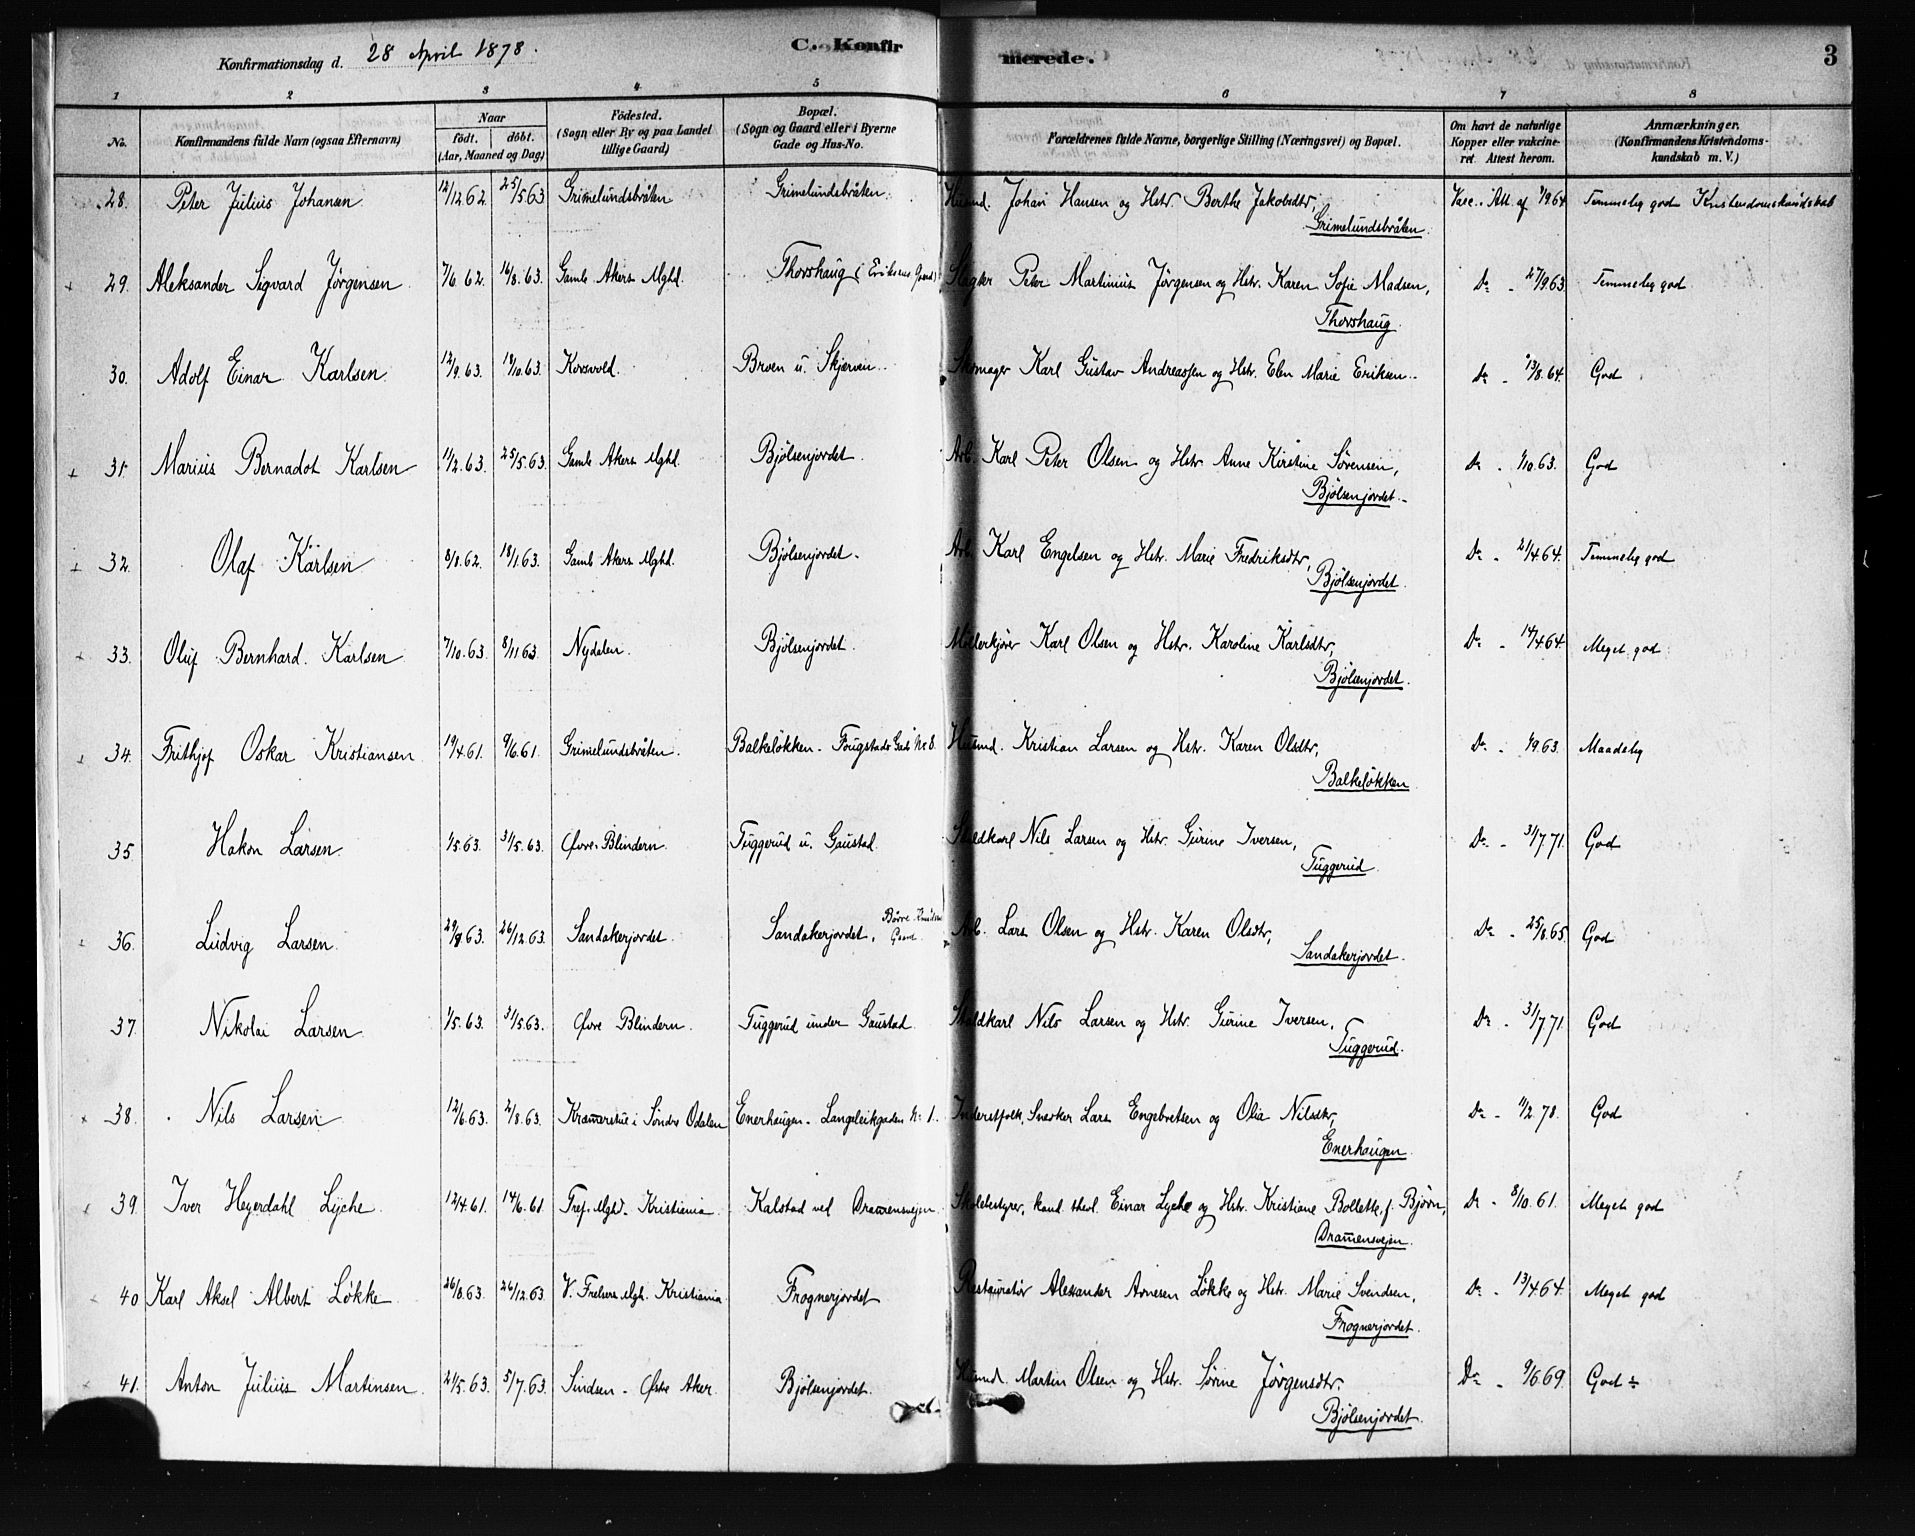 Konfirmationsdag d. 28 April 1878. C. Konfirmerede. 3
1 2 3 4 5 6 7 8
No. Konfirmandens fulde Navn (ogsaa Efternavn) Naar födt. döbt. (Aar, Maaned og Dag) Födested. (Sogn eller By og paa Landet tillige Gaard) Bopæl. (Sogn og Gaard eller i Byerne Gade og Hus-No. Forældrenes fulde Navne, borgerlige Stilling (Næringsvei) og Bopæl. Om havt de naturlige Kopper eller vakcineret. Attest herom. Anmærkninger. (Konfirmandens Kristendomskundskab m. V.)
28. Peter Julius Johansen 12/12.62. 25/5.63 Grimelundsbråten Grimelundsbråten. Husmd. Johan Hansen og Hstr. Berthe Jakobsdtr, Vacc. Att. af 1/9.64 Temmelig god Kristendomskundskab
Grimelundsbråten.
29. Aleksander Sigvard Jørgensen 7/6.62. 16/8.63. Gamle Akers Mghd. Thorshaug (Eriksens Gaard) Slagter Peter Martinius Jørgensen og Hstr. Karen Sofie Madsen, Do - 27/9.63 Temmelig god
Thorshaug.
30. Adolf Einar Karlsen 12/9.63. 18/10.63. Korsvold. Broen u. Skjerven. Skomager Karl Gustav Andreassen og Hstr. Elen Marie Eriksen. Do - 13/8.64. God
31. Marius Bernadot Karlsen 11/2.63. 25/5.63. Gamle Akers Mghd. Bjølsenjordet. Arb. Karl Peter Olsen og Hstr. Anne Kirstine Sørensen, Do - 1/10.63. God
Bjølsenjordet.
32. Olaf Karlsen 8/8.62. 18/1.63. Gamle Akers Mghd. Bjølsenjordet. Arb. Karl Engelsen og Hstr. Marie Fredriksdtr, Do - 21/4.64. Temmelig god
Bjølsenjordet.
33. Oluf Bernhard Karlsen 7/10.63. 8/11.63. Nydalen. Bjølsenjordet. Møllerkjører Karl Olsen og Hstr. Karoline Karlsdtr, Do - 14/4.64. Meget god
Bjølsenjordet.
34. Frithjof Oskar Kristiansen 19/4.61. 9/6.61. Grimelundsbråten. Balkeløkken. Fougstads Gade No 8. Husmd. Kristian Larsen og Hstr. Karen Olsdtr, Do - 1/9.63. Maadelig
Balkeløkken
35. Hakon Larsen 1/5.63. 31/5.63. Øvre Blindern. Tuggerud u. Gaustad. Staldkarl Nils Larsen og Hstr. Gurine Iversen, Do - 31/7.71. God
Tuggerud.
36. Ludvig Larsen 29/8.63. 26/12.63. Sandakerjordet. Sandakerjordet, Børre Knudsens Gaard Arb. Lars Olsen og Hstr. Karen Olsdtr, Do - 25/8.65. God
Sandakerjordet.
37. Nikolai Larsen 1/5.63. 31/5.63. Øvre Blindern. Tuggerud under Gaustad. Staldkarl Nils Larsen og Hstr. Gurine Iversen, Do - 31/7.71. God
Tuggerud.
38. Nils Larsen 12/6.63. 2/8.63. i Søndre Odalen Enerhaugen. Langleikgaden No 1. Inderstfolk, Snekker Lars Engebretsen og Olia Nilsdtr, Do - 11/2.78. God
Enerhaugen.
39. Iver Heyerdahl Lyche 12/4.61. 14/6.61. Tref. Mghd. Kristiania. Kalstad ved Drammensvejen. Skolebestyrer, kand. theol. Einar Lyche og Hstr. Kristiane Bollette, f. Bjørn, Do - 8/10.61. Meget god
Drammensvejen.
40 Karl Aksel Albert Løkke. 26/8.63. 26/12.63. V. Frelsers Mgh. Kristiania Frognerjordet Restauratør Alexander Arnesen Løkke og Hstr. Marie Svendsen, Do - 13/4.64. Meget god
Frognerjordet.
41. Anton Julius Martinsen. 21/5.63. 5/7.63. Sinsen - Østre Aker. Bjølsenjordet. Husmd. Martin Olsen og Hstr. Sørine Jørgensdtr. Do - 9/6.69. God
Bjølsenjordet.